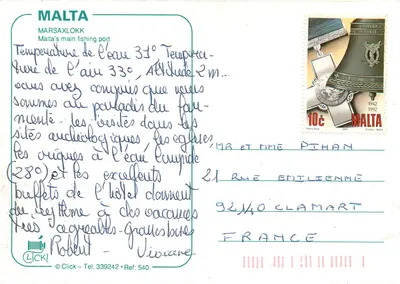 MALTA
MARSAXLOKK
Malta's main fishing port
Température de l'eau 31° Tempéra-
ture de l'air 33°, Altitude 2 m...
vous avez compris que nous
sommes au paradis du far-
niente. les visites dans les
sites archéologiques, les églises,
les criques à l'eau limpide
(28°) et les excellents
buffets de l'hôtel donnent
du rythme à des vacances
très agréables. Grosses bises
Robert - Viviane
CLICK!
© Click - Tel. 339242 • Ref: 540
10c
1942
1992
MR ET MME PIHAN
21 RUE EMILIENNE
92140 CLAMART
FRANCE